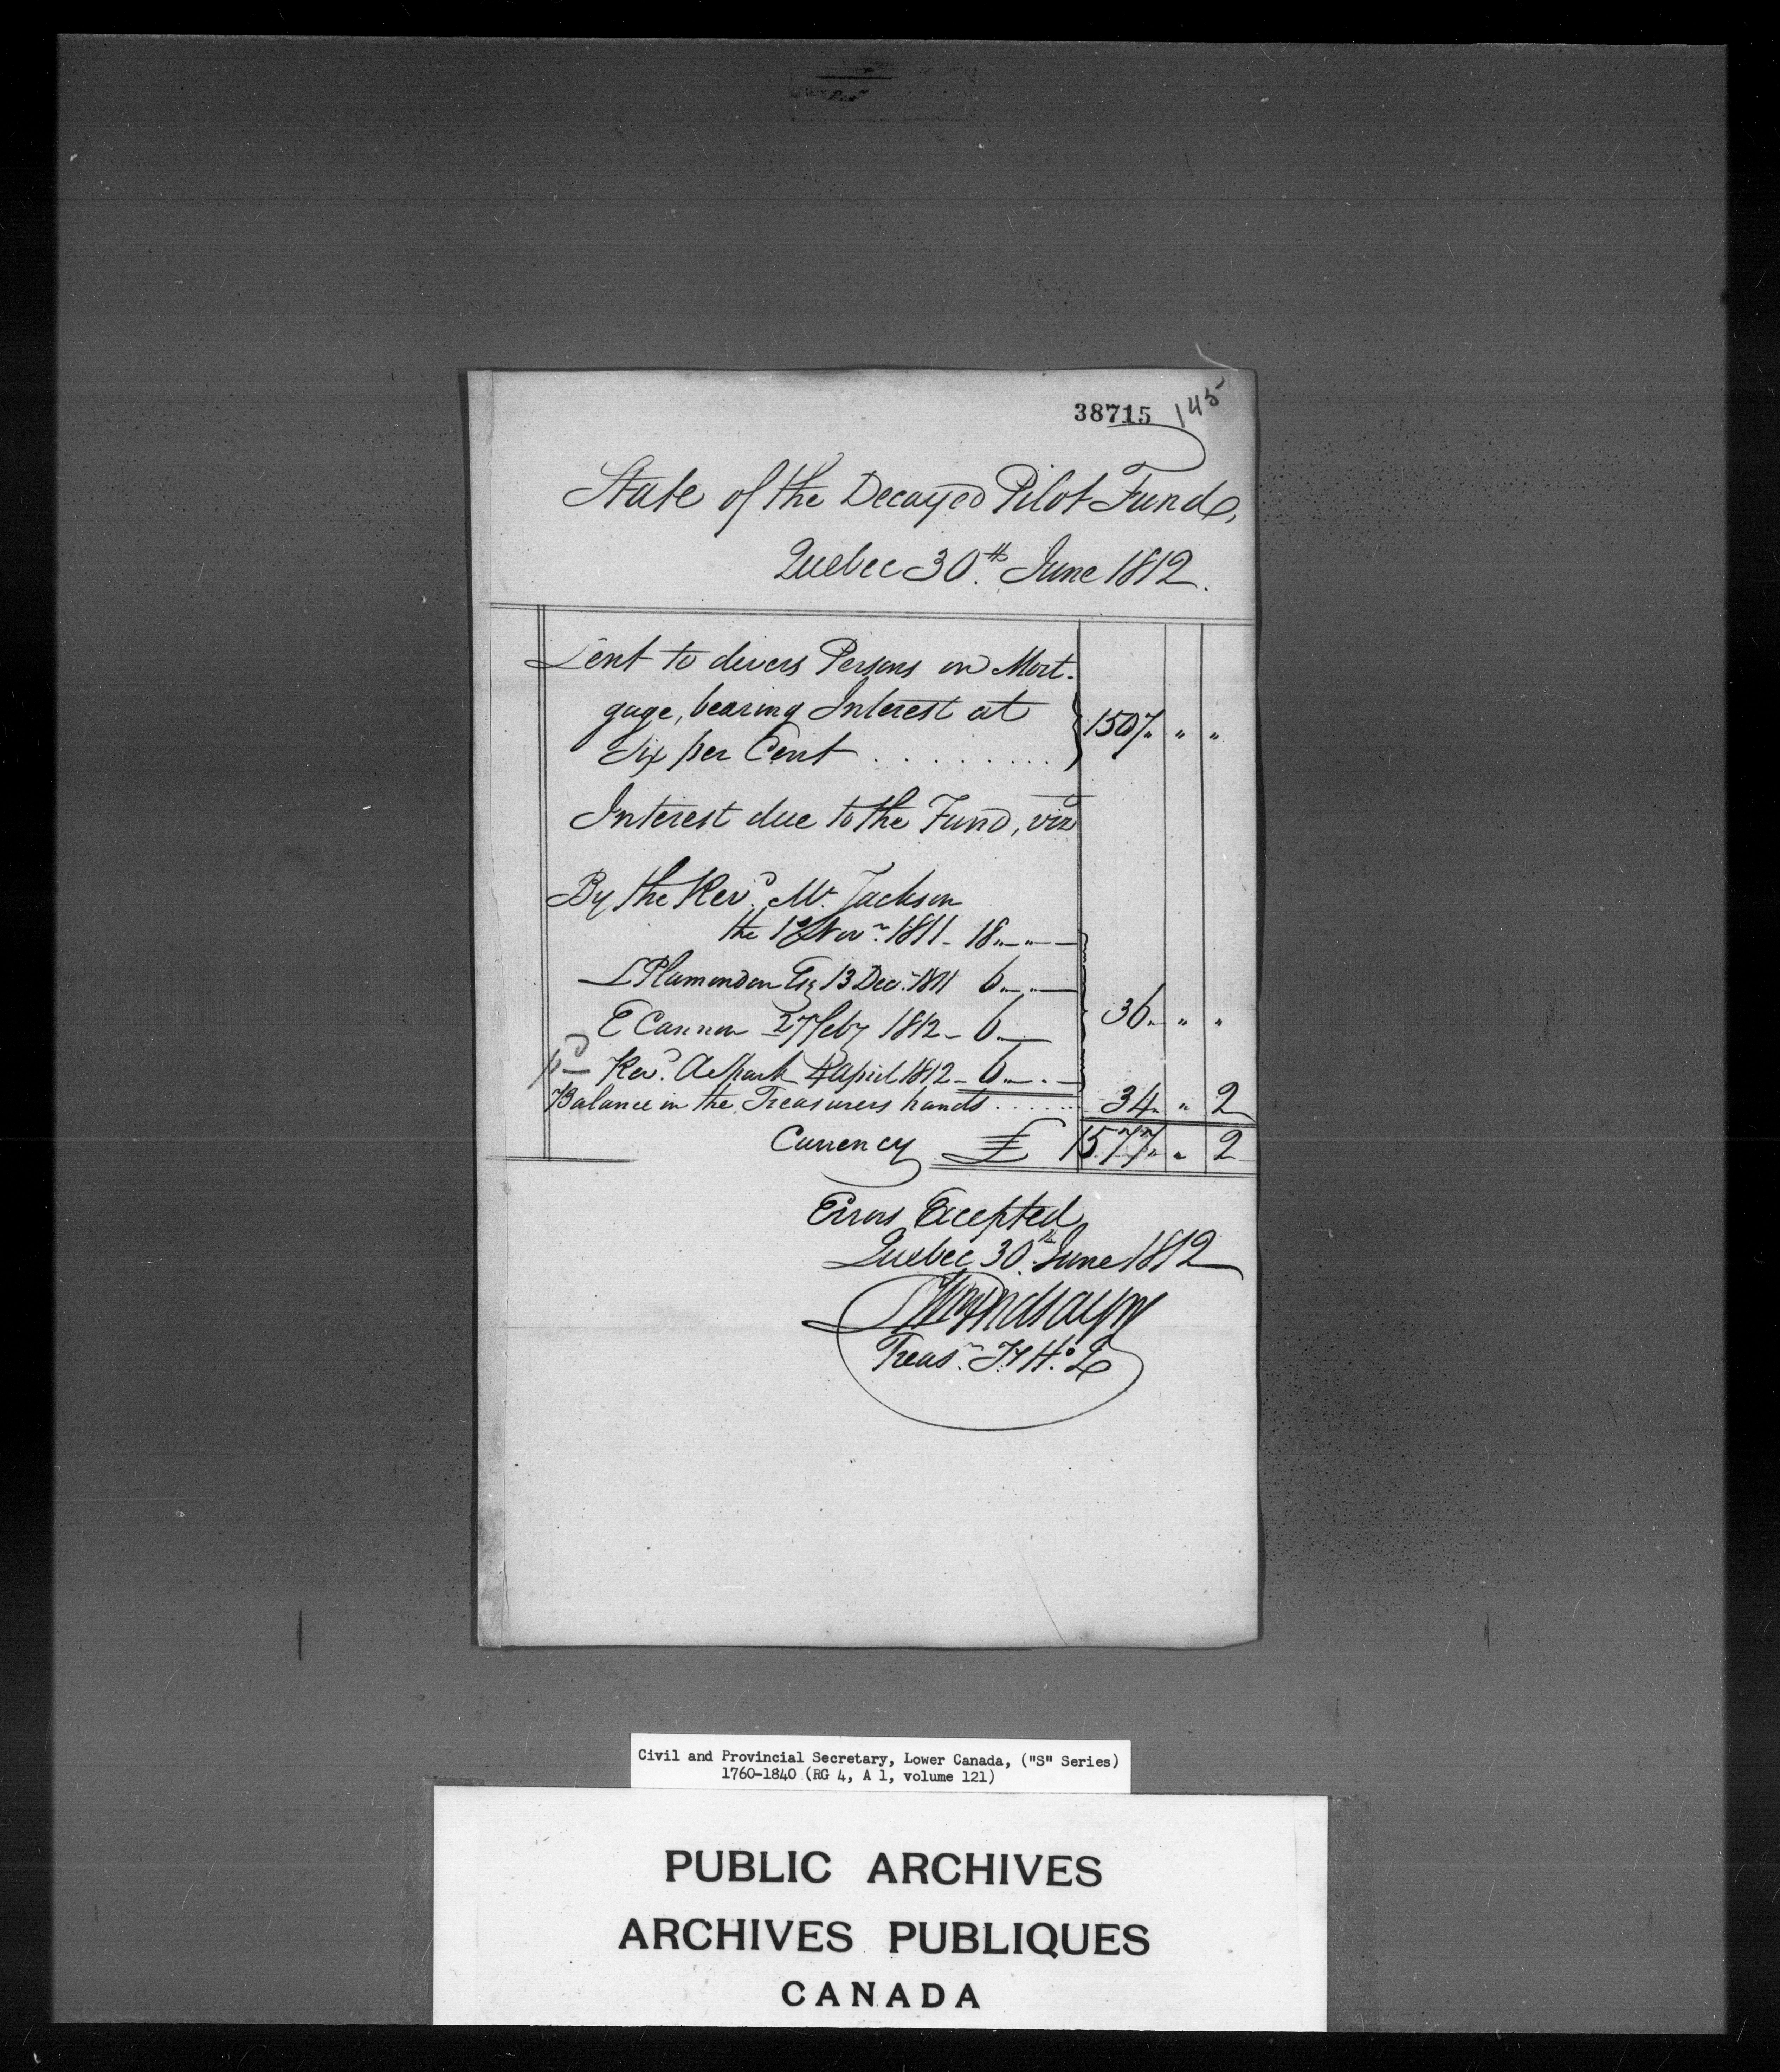 38715 145
State of the Decayed Pilot Fund,
Quebec 30.th June 1812.
Lent to divers Persons on Mort-
gage, bearing Interest at
Six per Cent . . . . . . . . . 1507 " "
Interest due to the Fund, viz
By the Revd. Mr. Jackson
the 1st Novr. 1811 - 18 " "
L Plamondon Esq 13 Decr. 1811 6 " "
E Cannon 27 feby 1812 - 6 " 36 " "
pd Revd. A Spark 4 April 1812 - 6 " "
Balance in the Treasurers hands . . . . . . 34 " 2
Currency £ 1577 " 2
Errors Excepted
Quebec 30th June 1812
Wm Lindsay
Treasr. T. Ho. Q
Civil and Provincial Secretary, Lower Canada, ("S" Series)
1760-1840 (RG 4, A 1, volume 121)
PUBLIC ARCHIVES
ARCHIVES PUBLIQUES
CANADA